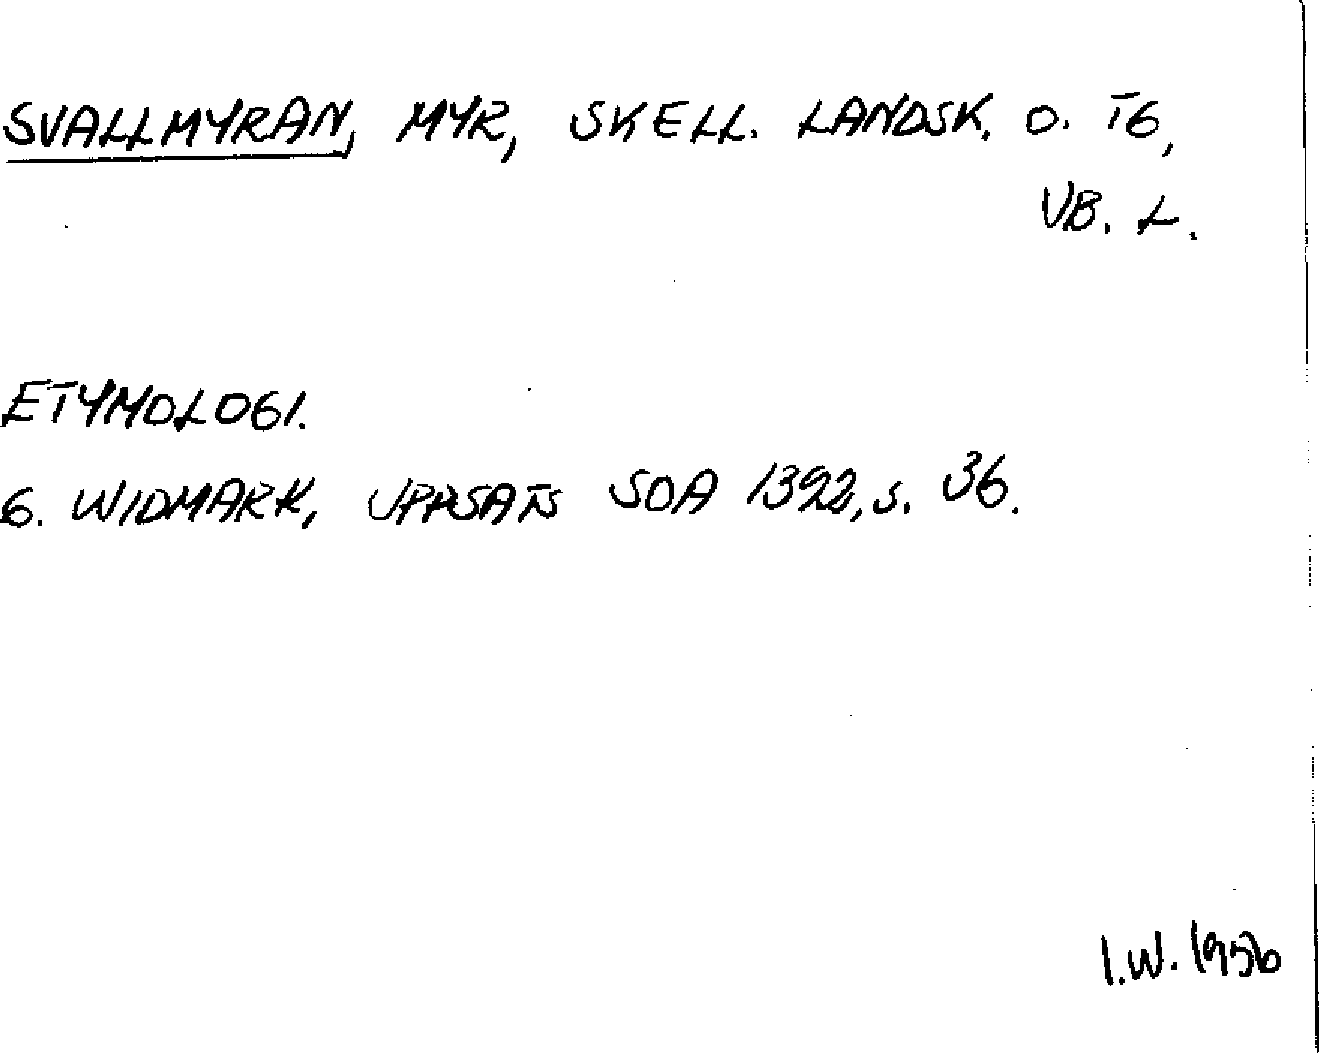 SVALLMYRAN, MYR, SKELL. LANDSK. O. TG,
VB. L.
ETYMOLOGI.
G. WIDMARK, UPPSATS SOA 1392, S. 36.
I.W. 1956